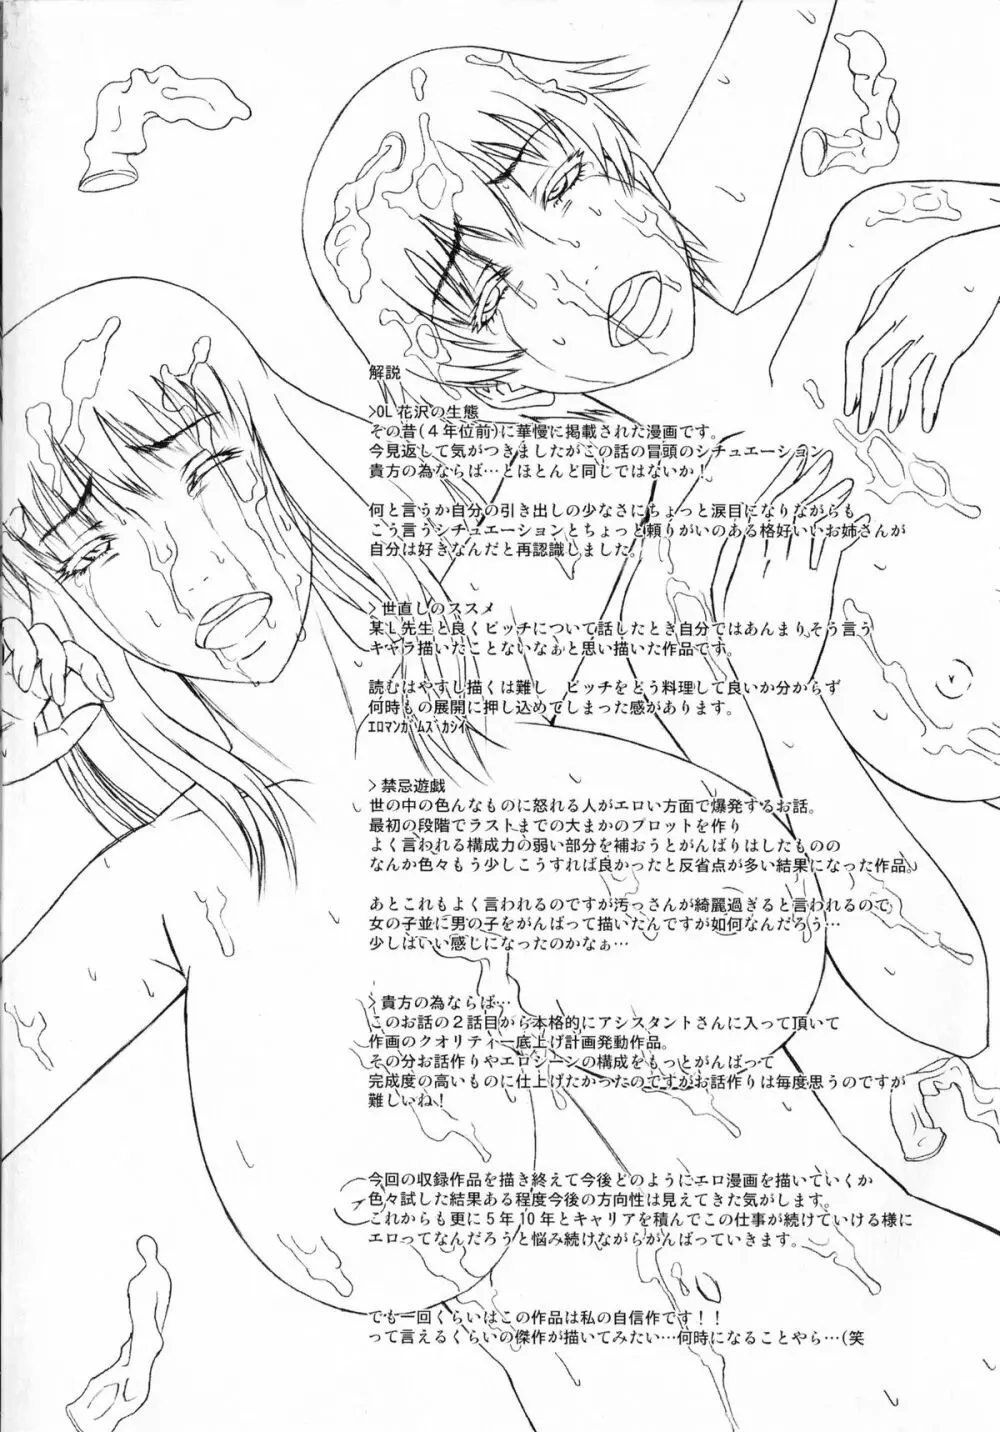 解説
>OL花沢の生態
その昔(4年位前)に華慢に掲載された漫画です。
今見返して気がつきましたがこの話の冒頭のシチュエーション
貴方の為ならば…とほとんど同じではないか！
何と言うか自分の引き出しの少なさにちょっと涙目になりながらも
こう言うシチュエーションとちょっと頼りがいのある格好いいお姉さんが
自分は好きなんだと再認識しました。
>世直しのススメ
某L先生と良くビッチについて話したとき自分ではあんまりそう言う
キャラ描いたことないなぁと思い描いた作品です。
読むはやすし描くは難し　ビッチをどう料理して良いか分からず
何時もの展開に押し込めてしまった感があります。
ｴﾛﾏﾝｶﾞﾑｽﾞｶｼｲ
>禁忌遊戯
世の中の色んなものに怒れる人がエロい方面で爆発するお話。
最初の段階でラストまでの大まかのプロットを作り
よく言われる構成力の弱い部分を補おうとがんばりはしたものの
なんか色々もう少しこうすれば良かったと反省点が多い結果になった作品。
あとこれもよく言われるのですが汚っさんが綺麗過ぎると言われるので
女の子並に男の子をがんばって描いたんですが如何なんだろう…
少しはいい感じになったのかなぁ…
>貴方の為ならば…
このお話の２話目から本格的にアシスタントさんに入って頂いて
作画のクオリティー底上げ計画発動作品。
その分お話作りやエロシーンの構成をもっとがんばって
完成度の高いものに仕上げたかったのですがお話作りは毎度思うのですが
難しいね！
今回の収録作品を描き終えて今後どのようにエロ漫画を描いていくか
色々試した結果ある程度今後の方向性は見えてきた気がします。
これからも更に５年10年とキャリアを積んでこの仕事が続けていける様に
エロってなんだろうと悩み続けながらがんばっていきます。
でも一回くらいはこの作品は私の自信作です！！
って言えるくらいの傑作が描いてみたい…何時になることやら…(笑